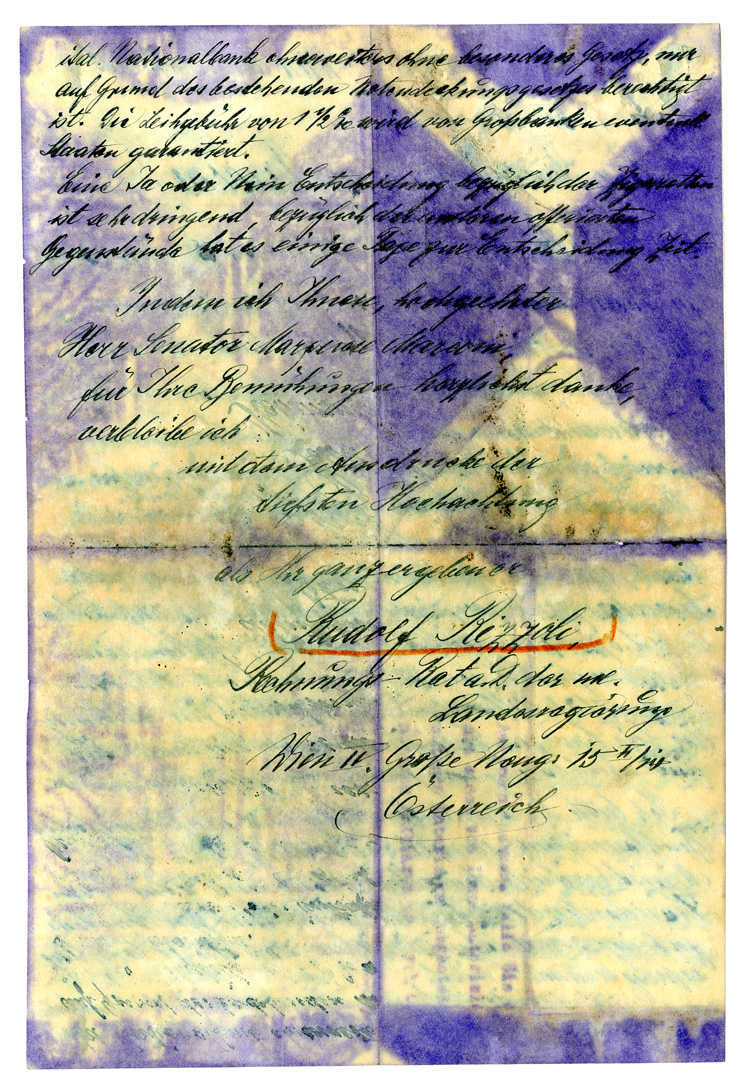 ital. Nationalbank ohneweiters ohne besonderes Gesetz, nur
auf Grund des bestehenden Notendeckungsgesetzes berechtigt
ist. Die Leihgebühr von 1 ½ % wird von Großbanken eventuell
Staaten garantiert.
Eine Ja oder Nein Entscheidung bezüglich der Zigaretten
ist sehr dringend, bezüglich der anderen offerierten
Gegenstände hat es einige Tage zur Entscheidung Zeit.
Indem ich Ihnen, hochgeehrter
Herr Senator Marchese Marconi,
für Ihre Bemühungen herzlichst danke,
verbleibe ich
mit dem Ausdrucke der
tiefsten Hochachtung
als Ihr ganz ergebener
Rudolf Rizzoli,
Rechnungs-Rat a.D. der
Landesregierung
Wien IV. Große Neug: 15
Österreich.